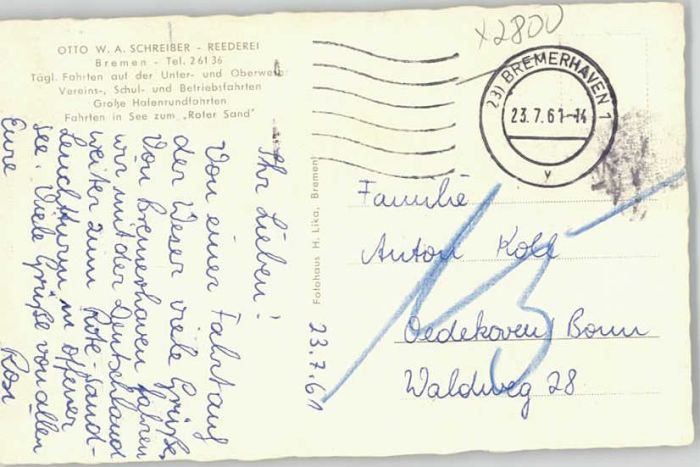 OTTO W. A. SCHREIBER - REEDEREI
Bremen - Tel. 26136
Tägl. Fahrten auf der Unter- und Oberweser
Vereins-, Schul- und Betriebsfahrten
Große Hafenrundfahrten
Fahrten in See zum „Roter Sand"
x2800
(23) BREMERHAVEN 1
23.7.61-14
v
Fotohaus H. Lika, Bremen
23.7.61
Ihr Lieben!
Von einer Fahrt auf
der Weser viele Grüße,
Von Bremerhaven fahren
wir mit der Deutschland
weiter zum Rote-Sand-
Leuchtturm in offener
See. Viele Grüße von allen
Eure Rosi
Familie
Anton Koll
Oedekoven/Bonn
Waldweg 28